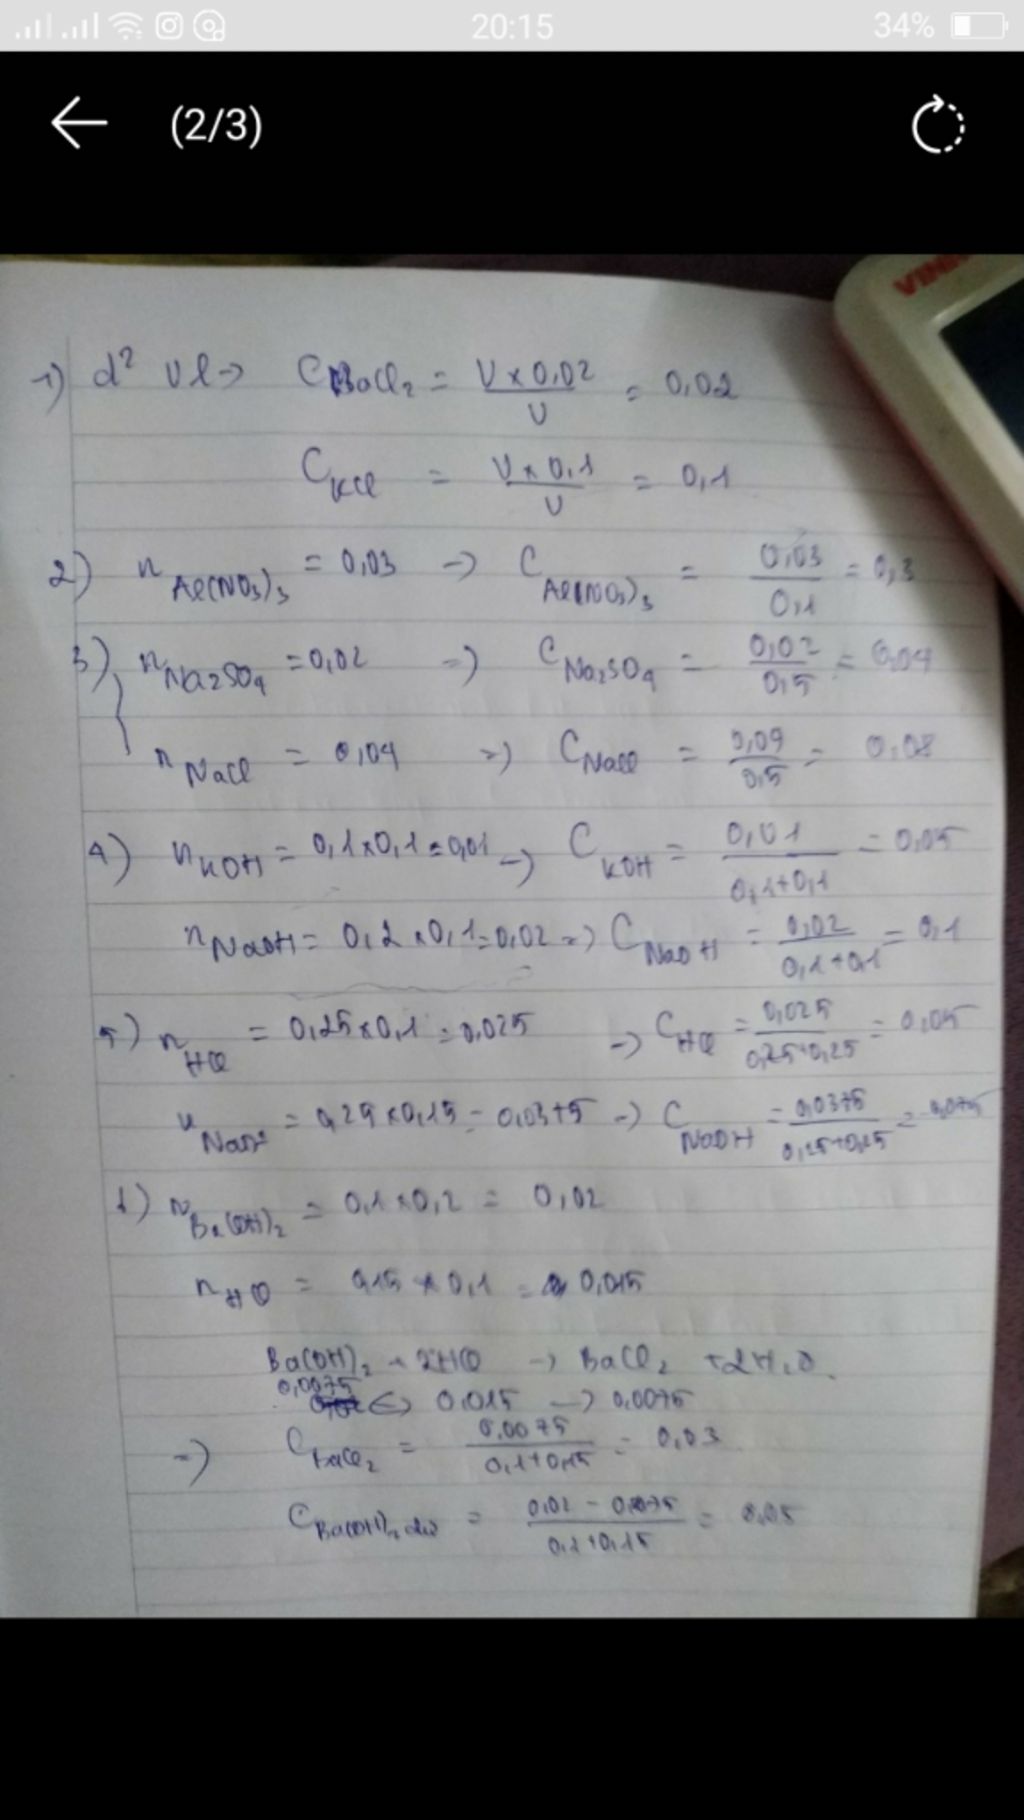 20:15
34%
(2/3)
1) d² Vl → C BaCl₂ = V×0,02 / V = 0,02
C KCl = V×0,1 / V = 0,1
2) n Al(NO₃)₃ = 0,03 → C Al(NO₃)₃ = 0,03 / 0,1 = 0,3
3) n Na₂SO₄ = 0,02 => C Na₂SO₄ = 0,02 / 0,5 = 0,04
n NaCl = 0,04 => C NaCl = 0,04 / 0,5 = 0,08
4) n KOH = 0,1×0,1 = 0,01 → C KOH = 0,01 / 0,1+0,1 = 0,05
n NaOH = 0,2×0,1 = 0,02 => C NaOH = 0,02 / 0,1+0,1 = 0,1
5) n HCl = 0,25×0,1 = 0,025 → C HCl = 0,025 / 0,25+0,25 = 0,05
n = 0,25×0,15 = 0,0375 → C NaOH = 0,0375 / 0,25+0,25 = 0,075
n Ba(OH)₂ = 0,1×0,2 = 0,02
n HCl = 0,15×0,1 = 0,015
Ba(OH)₂ + 2HCl → BaCl₂ + 2H₂O.
0,0075
<-> 0,015 → 0,0075
=> C BaCl₂ = 0,0075 / 0,1+0,15 = 0,03
C Ba(OH)₂ dư = 0,02 - 0,0075 / 0,1+0,15 = 0,05